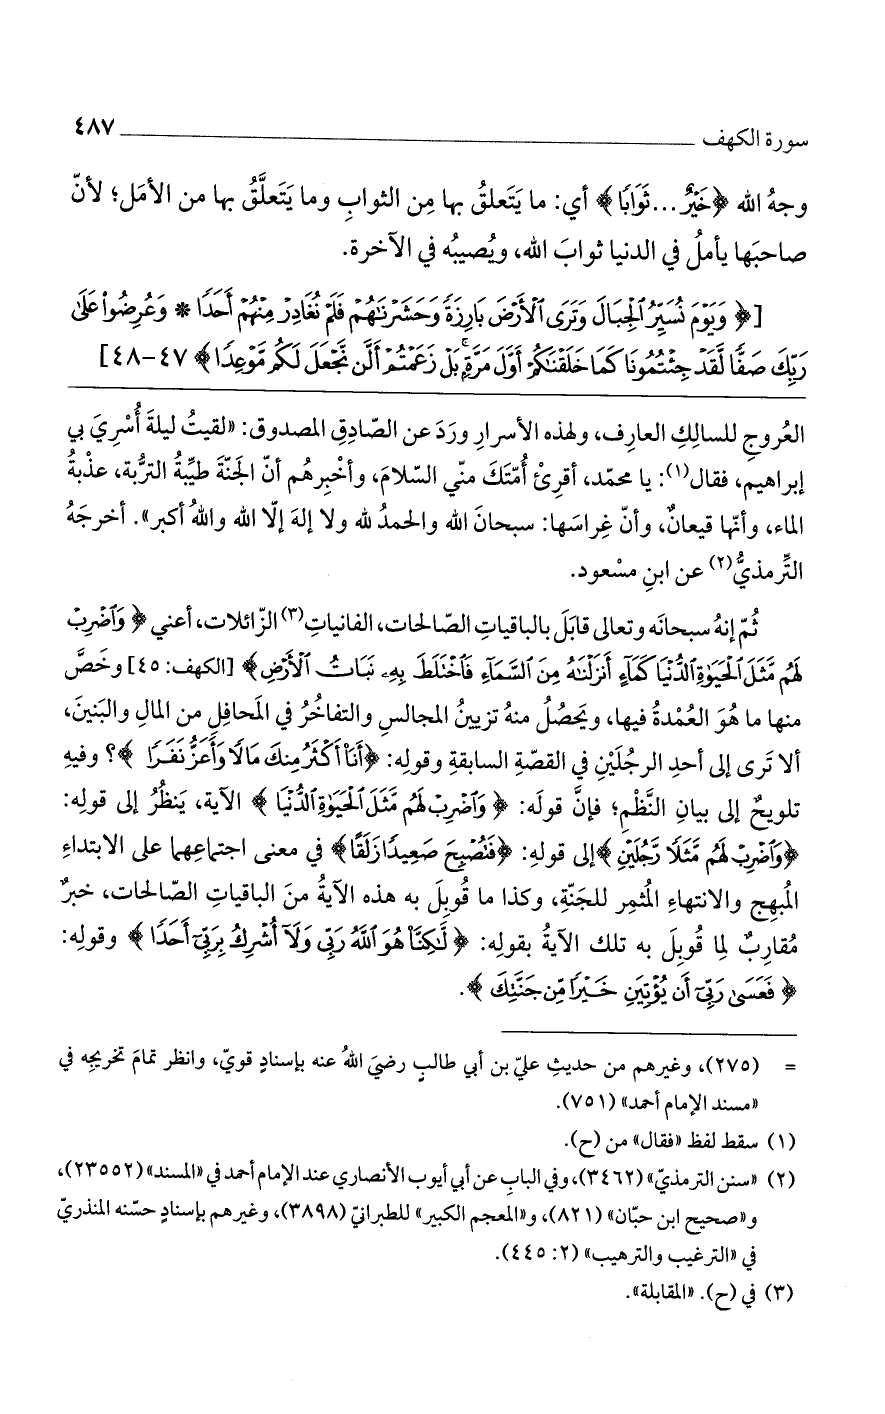 سورة الكهف ٤٨٧
وجهُ الله ﴿خَيْرٌ...ثَوَابًا﴾ أي: ما يَتَعلقُ بها مِن الثوابِ وما يَتَعلَّقُ بها من الأمَل؛ لأنّ
صاحبَها يأملُ في الدنيا ثوابَ الله، ويُصيبُه في الآخرة.
[﴿وَيَوْمَ نُسَيِّرُ الْجِبَالَ وَتَرَى الْأَرْضَ بَارِزَةً وَحَشَرْنَٰهُمْ فَلَمْ نُغَادِرْ مِنْهُمْ أَحَدًا * وَعُرِضُوا۟ عَلَىٰ
رَبِّكَ صَفًّا لَّقَدْ جِئْتُمُونَا كَمَا خَلَقْنَٰكُمْ أَوَّلَ مَرَّةٍۭ بَلْ زَعَمْتُمْ أَلَّن نَّجْعَلَ لَكُم مَّوْعِدًا﴾ ٤٧-٤٨]
العُروجِ للسالِكِ العارِف، ولهذه الأسرارِ ورَدَ عن الصّادِقِ المصدوق: «لقيتُ ليلةَ أُسْرِيَ بي
إبراهيم، فقال(١): يا محمّد، أقرِئْ أُمّتَكَ منّي السّلامَ، وأخْبِرهُم أنّ الجنّةَ طيِّبةُ التّربُة، عذْبةُ
الماء، وأنّها قيعانٌ، وأنّ غِراسَها: سبحانَ الله والحمدُ لله ولا إلهَ إلّا الله واللهُ أكبر». أخرجَهُ
التِّرمذيُّ(٢) عن ابنِ مسْعود.
ثُمّ إنهُ سبحانَه وتعالى قابَلَ بالباقياتِ الصّالحات، الفانياتِ(٣) الزّائلات، أعني ﴿وَٱضْرِبْ
لَهُم مَّثَلَ ٱلْحَيَوٰةِ ٱلدُّنْيَا كَمَآءٍ أَنزَلْنَٰهُ مِنَ ٱلسَّمَآءِ فَٱخْتَلَطَ بِهِۦ نَبَاتُ ٱلْأَرْضِ﴾ [الكهف: ٤٥] وخَصَّ
منها ما هُوَ العُمْدةُ فيها، ويَحصُلُ منهُ تزيينُ المجالسِ والتفاخُرُ في المَحافِلِ من المالِ والبَنينَ،
ألا تَرى إلى أحدِ الرجُلَيْنِ في القصّةِ السابقةِ وقولِه: ﴿أَنَا۠ أَكْثَرُ مِنكَ مَالًا وَأَعَزُّ نَفَرًا﴾؟ وفيهِ
تلويحٌ إلى بيانِ النَّظْم؛ فإنَّ قولَه: ﴿وَٱضْرِبْ لَهُم مَّثَلَ ٱلْحَيَوٰةِ ٱلدُّنْيَا﴾ الآية، يَنظُرُ إلى قولِه:
﴿وَٱضْرِبْ لَهُم مَّثَلًا رَّجُلَيْنِ﴾ إلى قولِهِ: ﴿فَتُصْبِحَ صَعِيدًا زَلَقًا﴾ في معنى اجتماعِهما على الابتداءِ
المُبهِج والانتهاءِ المُثمِر للجَنّةِ، وكذا ما قُوبِلَ به هذه الآيةُ منَ الباقياتِ الصّالحات، خبرٌ
مُقاربٌ لِما قُوبِلَ به تلك الآيةُ بقولِه: ﴿لَّٰكِنَّا۠ هُوَ ٱللَّهُ رَبِّى وَلَآ أُشْرِكُ بِرَبِّىٓ أَحَدًا﴾ وقولِه:
﴿فَعَسَىٰ رَبِّىٓ أَن يُؤْتِيَنِ خَيْرًا مِّن جَنَّتِكَ﴾.
= (٢٧٥)، وغيرهم من حديثِ عليّ بن أبي طالبٍ رضيَ اللهُ عنه بإسنادٍ قويّ، وانظر تمامَ تخريجِه في
«مسند الإمام أحمد» (٧٥١).
(١) سقط لفظ «فقال» من (ح).
(٢) «سنن الترمذيّ» (٣٤٦٢)، وفي البابِ عن أبي أيوب الأنصاري عند الإمام أحمد في «المسند» (٢٣٥٥٢)،
و«صحيح ابن حبّان» (٨٢١)، و«المعجم الكبير» للطبرانيّ (٣٨٩٨)، وغيرهم بإسنادٍ حسّنه المنذريّ
في «الترغيب والترهيب» (٢: ٤٤٥).
(٣) في (ح). «المقابلة».